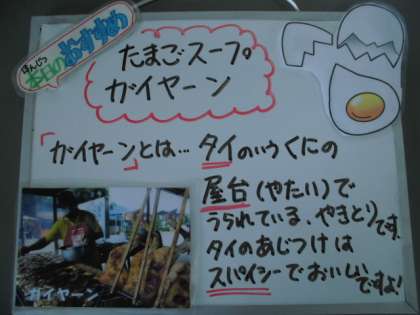 ほんじつ
本日のおすすめ
たまごスープ
ガイヤーン
「ガイヤーン」とは… タイのいうくにの
屋台(やたい)で
うられている、やきとりです。
タイのあじつけは
スパイシーでおいしいですよ!
ガイヤーン